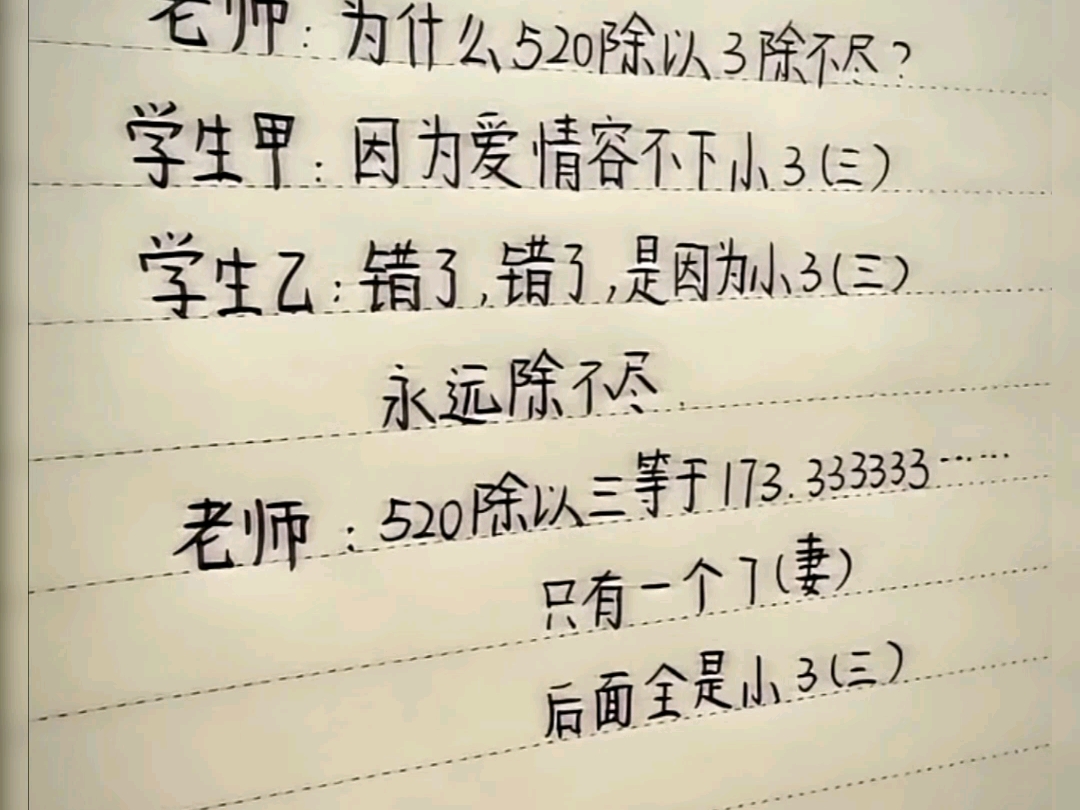 老师：为什么520除以3除不尽？
学生甲：因为爱情容不下小3(三)
学生乙：错了,错了,是因为小3(三)
永远除不尽.
老师：520除以三等于173.333333……
只有一个7(妻)
后面全是小3(三)